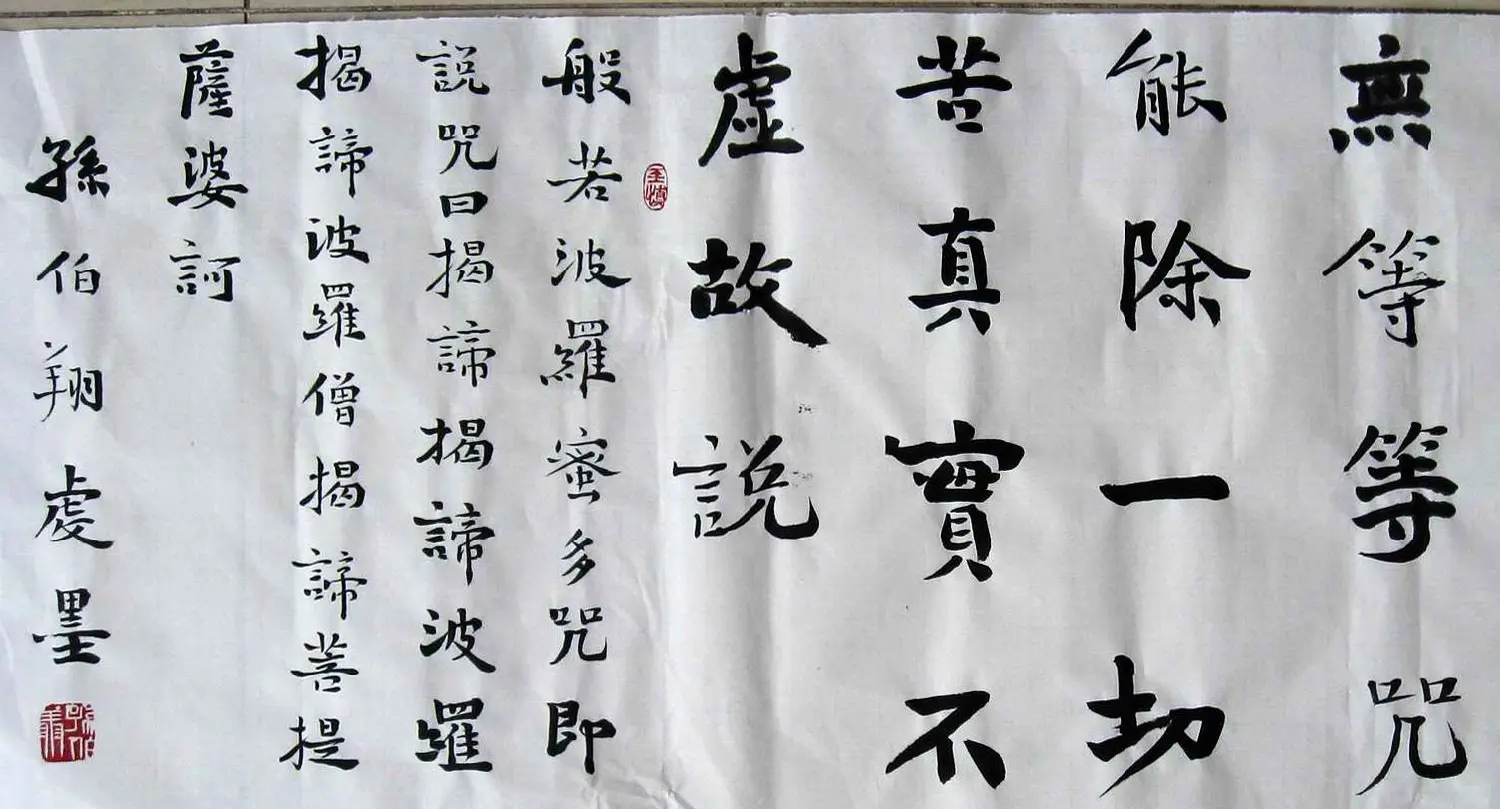 無等等咒
能除一切
苦真實不
虛故說
般若波羅蜜多咒即
說咒曰揭諦揭諦波羅
揭諦波羅僧揭諦菩提
薩婆訶
孫伯翔處墨